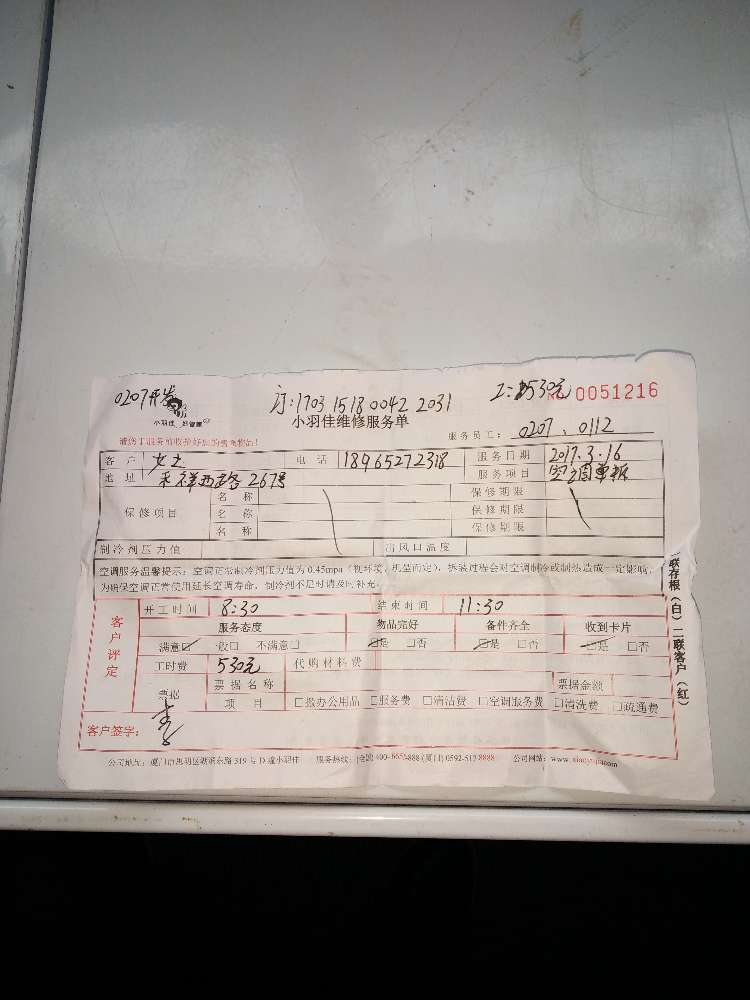 0207开发 订:1703 1518 0042 2031 工:530元 No 0051216
小羽佳 好管家
小羽佳维修服务单
服务员工: 0207、0112
客户 女士 电话 18965272318 服务日期 2017.3.16
地址 禾祥西路267号 服务项目 空调单拆
保修项目
名称 保修期限
名称 保修期限
名称 保修期限
制冷剂压力值 出风口温度
空调服务温馨提示: 空调正常制冷剂压力值为0.45mpa(视环境、机型而定), 拆装过程会对空调制冷或制热造成一定影响,
为确保空调正常使用延长空调寿命, 制冷剂不足时请及时补充。
客户评定
开工时间 8:30 结束时间 11:30
服务态度 物品完好 备件齐全 收到卡片
满意□ 一般□ 不满意□ □是 □否 □是 □否 □是 □否
工时费 530元 代购材料费
票据 票据名称 票据金额
项目 □缴办公用品 □服务费 □清洁费 □空调服务费 □清洗费 □疏通费
客户签字: 李
公司地址: 厦门市思明区 319号 小羽佳 服务热线: 全国400-6655888 (厦门) 0592-5128888 公司网站: www.xiaoyujia.com
一联存根(白) 二联客户(红)